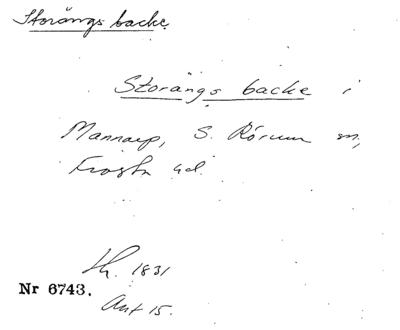 Storängs backe
Storängs backe i
Mannarp, S. Rörum sn,
Frosta hd.
Lh. 1831
Nr 6743.
Akt 15.